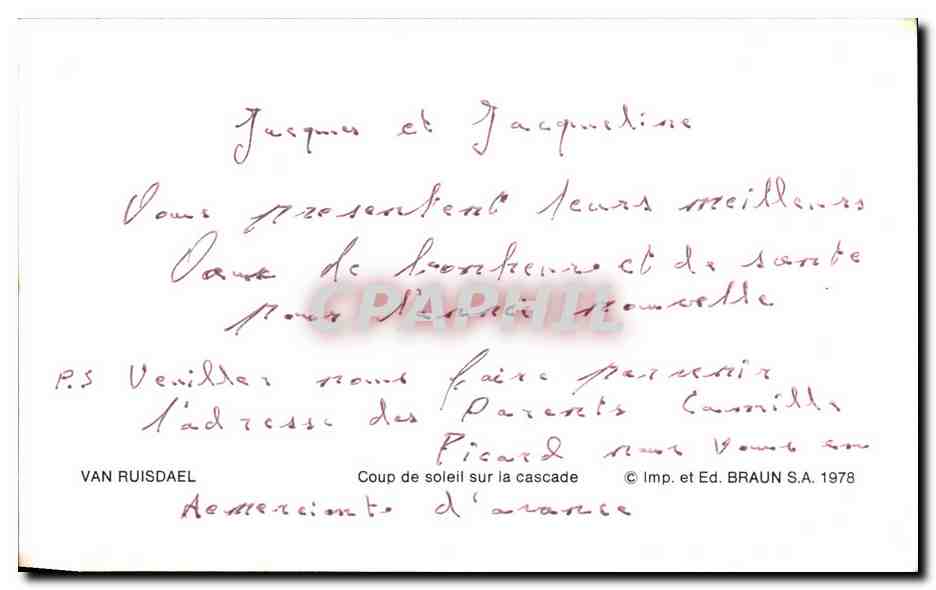 Jacques et Jacqueline
Vous presentent leurs meilleurs
Voeux de bonheur et de sante
pour l'année nouvelle
CPAPHIL
P.S Veuillez nous faire parvenir
l'adresse des Parents Camille
Picard nous vous en
VAN RUISDAEL Coup de soleil sur la cascade © Imp. et Ed. BRAUN S.A. 1978
d'avance